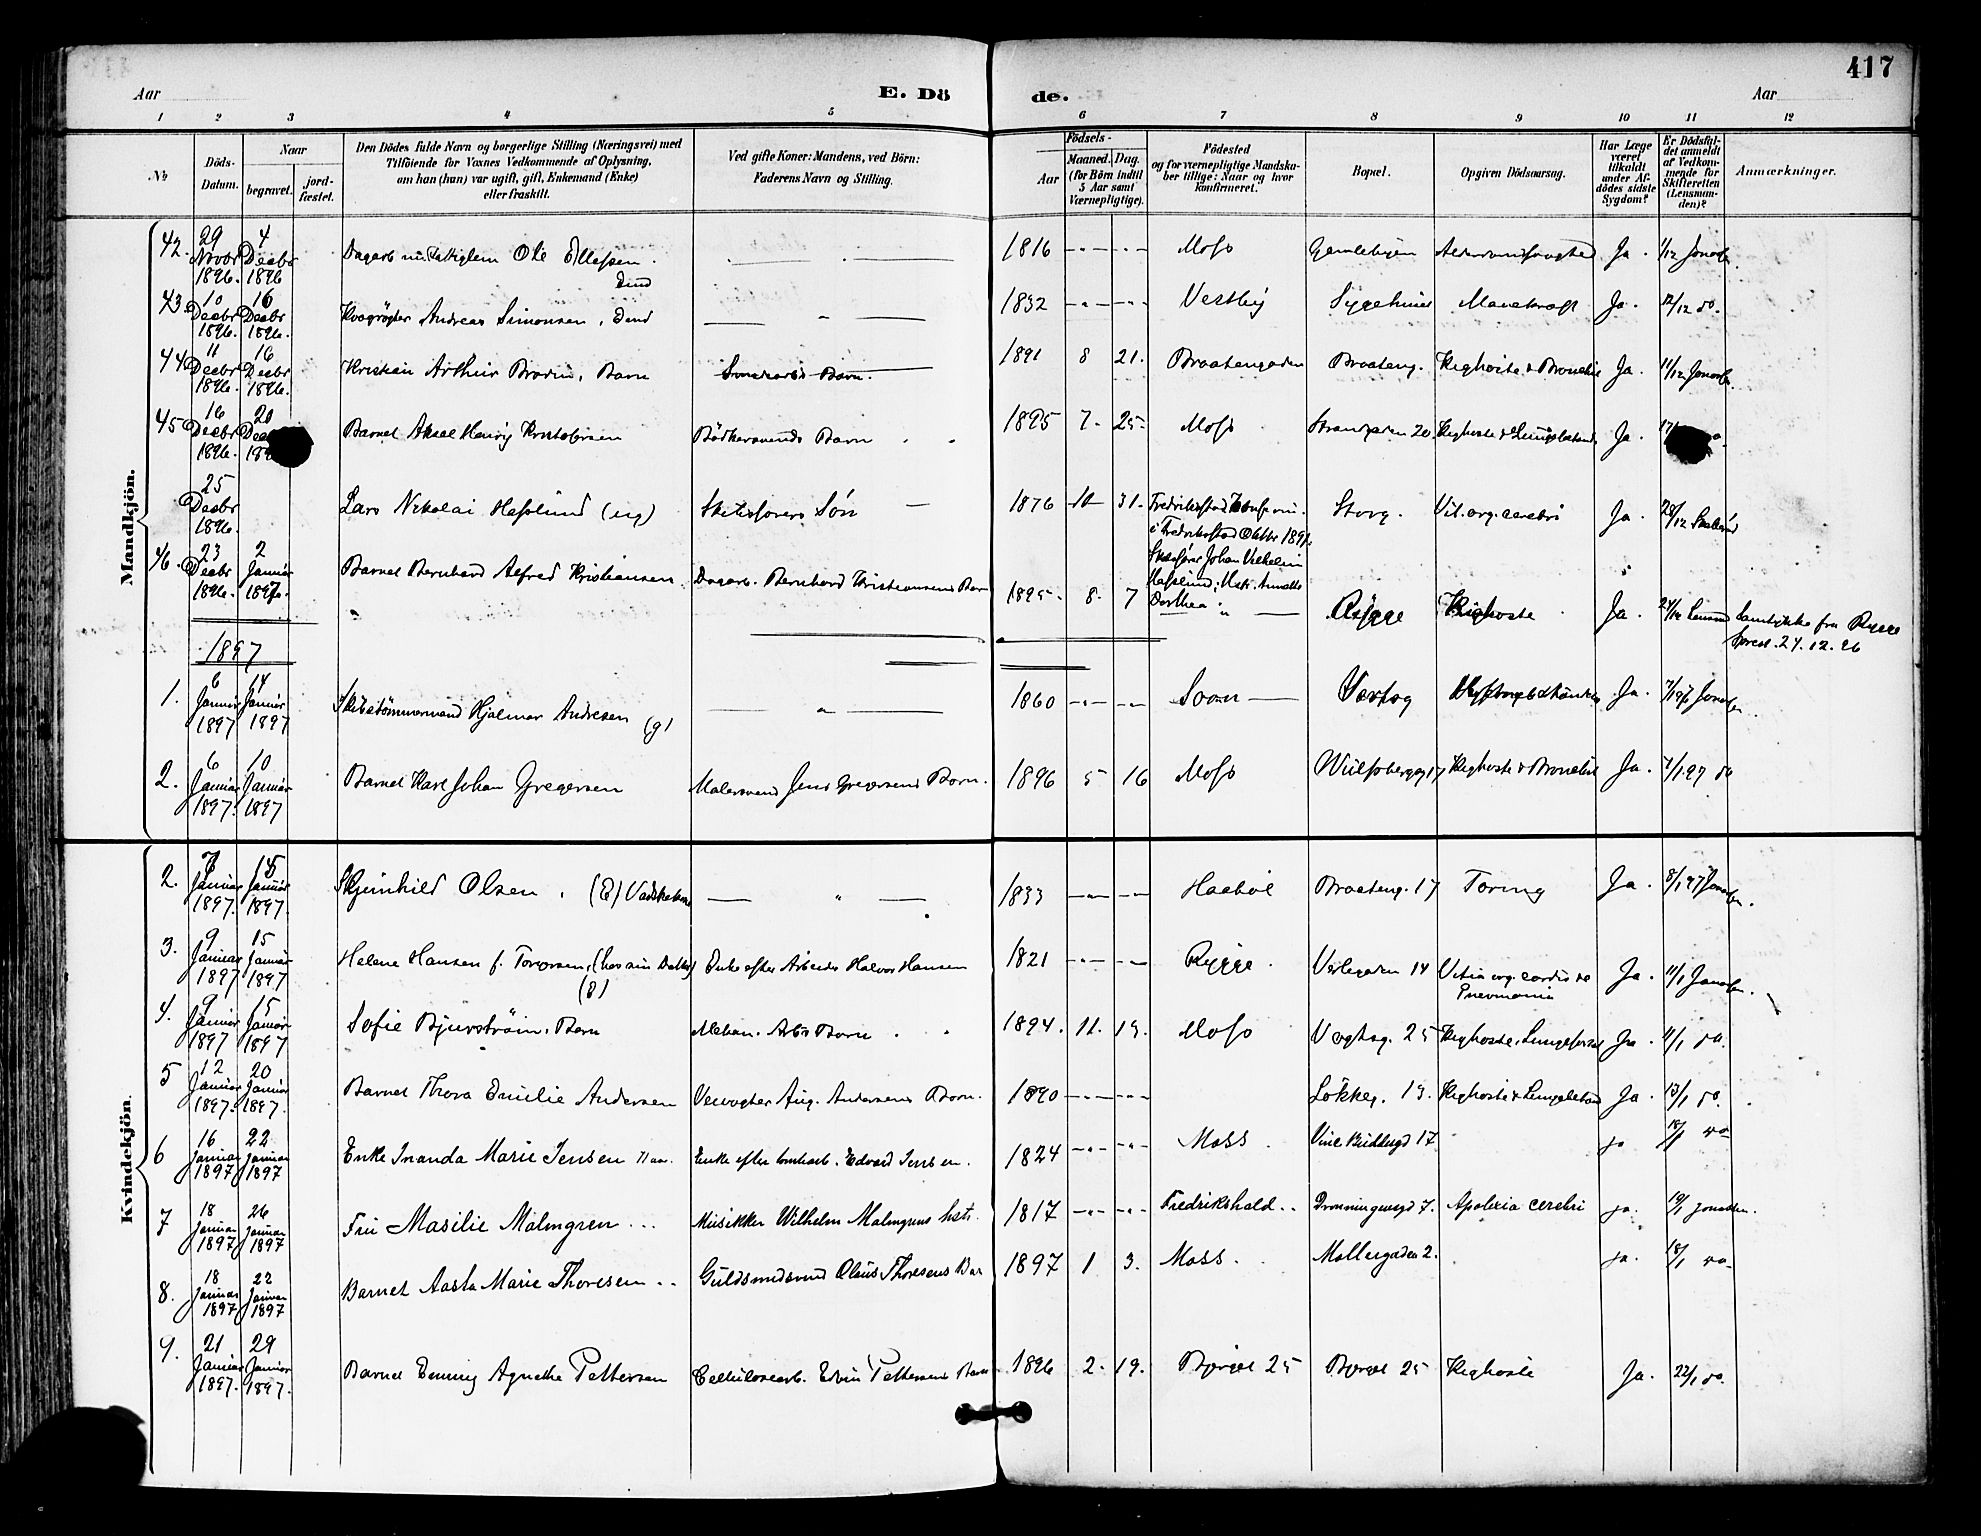 417
Aar
E. Dö
de.
Aar
1 2 3 4 5 6 7 8 9 10 11 12
No
Döds-Datum.
Naar
begravet.
jord-fæstet.
Den Dödes fulde Navn og borgerlige Stilling (Næringsvei) med
Tilföiende for Voxnes Vedkommende af Oplysning,
om han (hun) var ugift, gift, Enkemand (Enke)
eller fraskilt.
Ved gifte Koner: Mandens, ved Börn:
Faderens Navn og Stilling.
Födsels-
Aar
Maaned. Dag.
(for Börn indtil
5 Aar samt
Værnepligtige).
Födested
og for værnepligtige Mandska-
ber tillige: Naar og hvor
konfirmeret.
Bopæl.
Opgiven Dödsaarsag.
Har Læge
været
tilkaldt
under Af-
dödes sidste
Sygdom?
Er Dödsfal-
det anmeldt
af Vedkom-
mende for
Skifteretten
(Lensman-
den)?
Anmærkninger.
Mandkjön.
42. 29 Novbr 1896. 4 Decbr 1896 Ole Ellefsen. Emd 1816 Moss Gamlebyen Ja.
43. 10 Decbr 1896. 16 Decbr 1896. Andreas Simonsen, Emd 1832 Vestby Sygehuset Ja. 12/12 do.
44. 11 Decbr 1896. 16 Decbr 1896. Kristian Arthur Brodin, Barn Barn. 1891 8 21. Braatengaden Braateng. Kighoste & Bronchit Ja. 11/12
45 16 Decbr 1896. 20 Barnet Aksel Henrij Kristofersen Bödkersvends Barn 1895 7. 25. Moss Strandgaden 20. Kighoste & Ja.
25 Decbr 1896. Lars Nikolai Hafslund (ug) Skibsförers Sön 1876 10 31. Fredrikstad Konfirm. i Fredrikstad Oktbr 1891. Skibsförer Johan Vilhelm Hafslund, Dorthea Storg. Vit. org. cerebri Ja. 28/12
46. 23 Decbr 1896. 2 Januar 1897. Barnet Bernhard Alfred Kristiansen Dagarb. Bernhard Kristiansens Barn 1895. 8. 7 Rygge Kighoste Ja. Samtykke fra Rygge 27.12.96
1897
1. 6 Januar 1897 14 Januar 1897 Skibstömmermand Hjalmar Andresen (g) 1860 Soon Ja.
2. 6 Januar 1897. 10 Januar 1897 Barnet Karl Johan Gregersen Malersvend Jens Gregersens Barn. 1896 5 16 Moss Wulfsbergg 17 Kighoste & Bronchit Ja. 7/1.97 do
Kvindekjön.
2. 7 Januar 1897. 15 Januar 1897. Olsen, (E) Vadskekone 1833 Haaböl Braateng. 17 Tæring Ja. 8/1 97
3. 9 Januar 1897 15 Januar 1897 Helene Hansen f. (hos sin Datter) (E) Enke efter Arbeider Halvor Hansen 1821 Rygge. 14 Vitia org. cordis & Pneumonia Ja. 11/1
4. 9 Januar 1897 15 Januar 1897 Sofie Bjurström, Barn Mekan. Arb. Barn 1894. 11. 19. Moss Vogtsg. 25 Kighoste, Ja. 11/1 do.
5 12 Januar 1897. 20 Januar 1897. Barnet Thora Emilie Andersen Veivogter Aug. Andersens Barn. 1890 Lökkeg. 19. Kighoste & Ja. 13/1 do.
6 16 Januar 1897 22 Januar 1897 Enke Inanda Marie Jensen Enke efter Edvard Jensen. 1824 Moss 17. ja 18/1 do
7 18 Januar 1897 26 Januar 1897 Fru Masilie Malmgren Musikker Wilhelm Malmgrens hstr. 1817 Fredrikshald Dronningensgd 7. Apolexia cerebri ja. 19/1
8. 18 Januar 1897 22 Januar 1897 Barnet Aasta Marie Thoresen Guldsmedsvend Olaus Thoresens Bar 1897 1 3. Moss. Möllergaden 2. ja. 18/1 do
9. 21 Januar 1897. 29 Januar 1897. Barnet Emmy Agnethe Pettersen Cellulosearb. Edvin Pettersens Barn 1896 2. 19. Bjerget 25 Bjerget 25 Kighoste Ja. 22/1 do.